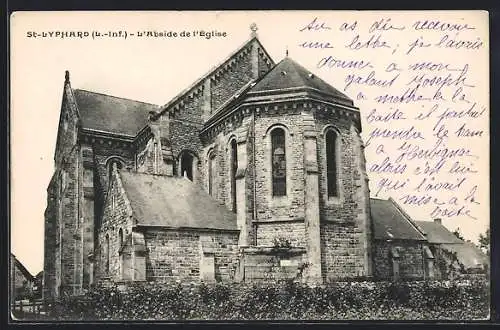 St-LYPHARD (L.-Inf.) - L'Abside de l'Église
Tu as dû recevoir
une lettre, je l'avais
donner a mon
galant Joseph
a mettre a la
boîte il partait
prendre le train
a Herbignac
alors c'est
qui l'avait
mis a la
boîte